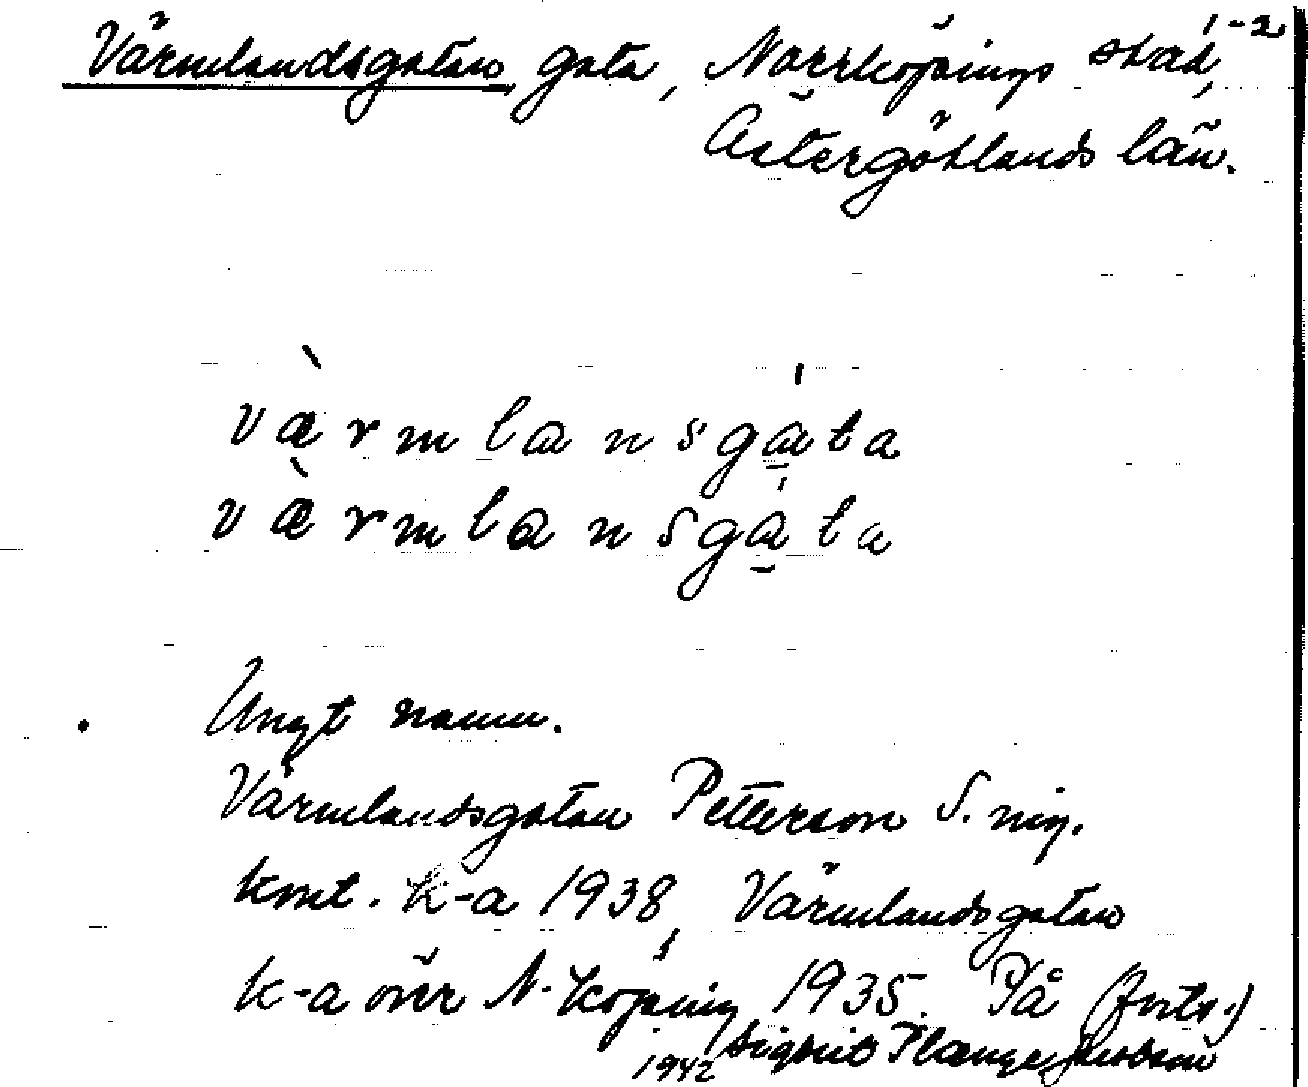 Värmlandsgatan, gata, Norrköpings stad, 1-2
Östergötlands län.
v æ̀ r m l a n s g á t a
v æ̀ r m l a n s g á t a
Ungt namn.
Värmlandsgatan Petterson S. niy.
kmt. k-a 1938, Värmlandsgatan
k-a över N-köping 1935. På (forts.)
1942 Sigbrit Plænge Jacobson